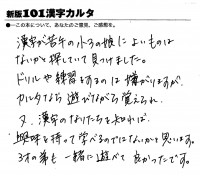 新版101漢字カルタ
●この本について、あなたのご意見、ご感想を。
漢字が苦手の小3の娘によいものは
ないかと探していて見つけました。
ドリルや練習をするのは嫌がりますが、
カルタなら遊びながら覚えられ、
又、漢字のなりたちを知れば、
興味を持って学べるのではないかと思います。
3才の弟も一緒に遊べて良かったです。